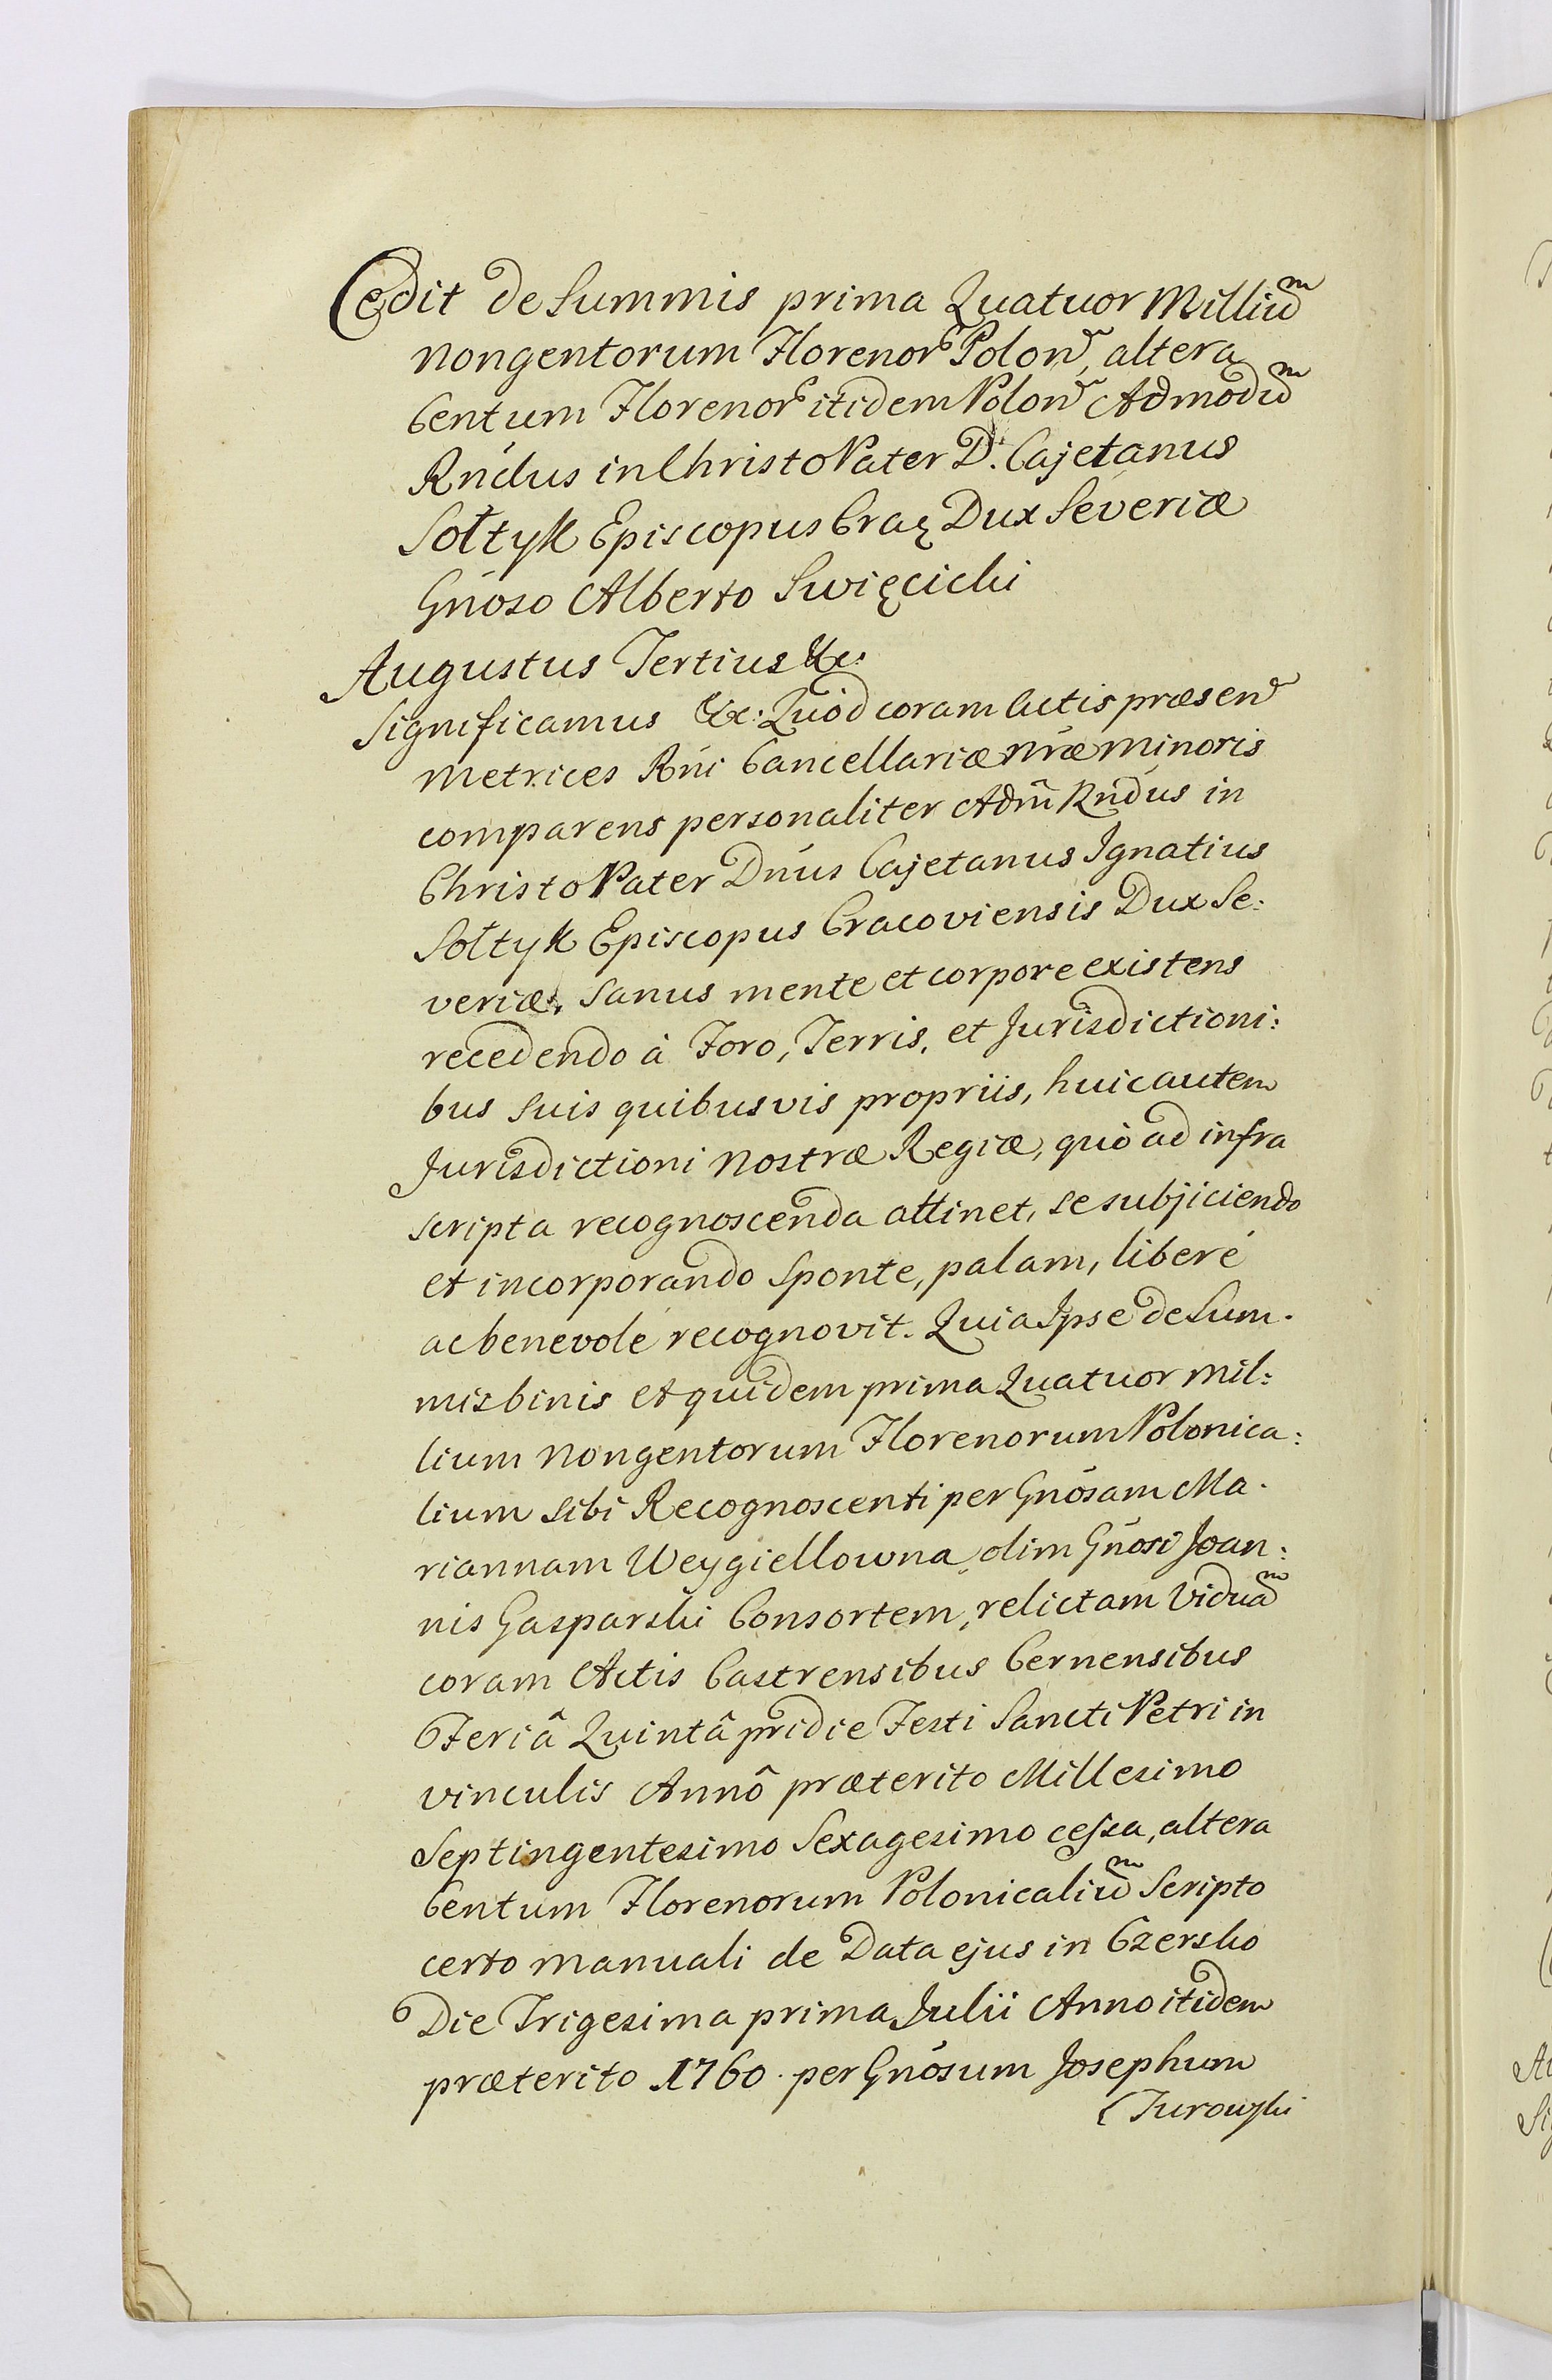 Cedit de Summis prima Quatuor Milliũm
nongentorum Florenor Polon, altera
Centum Florenor itidem Polon Admodũm
Rńdus in Christo Pater D. Cajetanus
Sołtyk Episcopus Crac Dux Severiæ
Gńoso Alberto Swięcicki
Augustus Tertius &c:
Significamus &c: Quod coram Actis præsen
Metrices Rńi Cancellariæ nræ minoris
comparens personaliter Adm̃ Rńdus in
Christo Pater Dńus Cajetanus Ignatius
Sołtyk Episcopus Cracoviensis Dux Se:
veriæ, Sanus mente et corpore existens
recedendo à Foro, Terris, et Jurisdictioni:
bus suis quibusvis propriis, huic autem
Jurisdictioni Nostræ Regiæ, quò ad infra
scripta recognoscenda attinet, se subjiciendo
et incorporando Sponte, palam, liberé
ac benevolé recognovit. Quia Ipse de Sum.
mis binis et quidem prima Quatuor Mil:
lium Nongentorum Florenorum Polonica:
lium sibi Recognoscenti per Gńosam Ma.
riannam Weygiellowna, olim Gńosi Joan:
nis Gasparski Consortem, relictam Viduam
coram Actis Castrensibus Cernensibus
Feriâ Quintâ pridie Festi Sancti Petri in
vinculis Annô præterito Millesimo
Septingentesimo Sexagesimo cessa, altera
Centum Florenorum Polonicaliũm Scripto
certo manuali de Data ejus in Czersko
Die Trigesima prima Julii Anno itidem
præterito 1760. per Gńosum Josephum
(Turowski